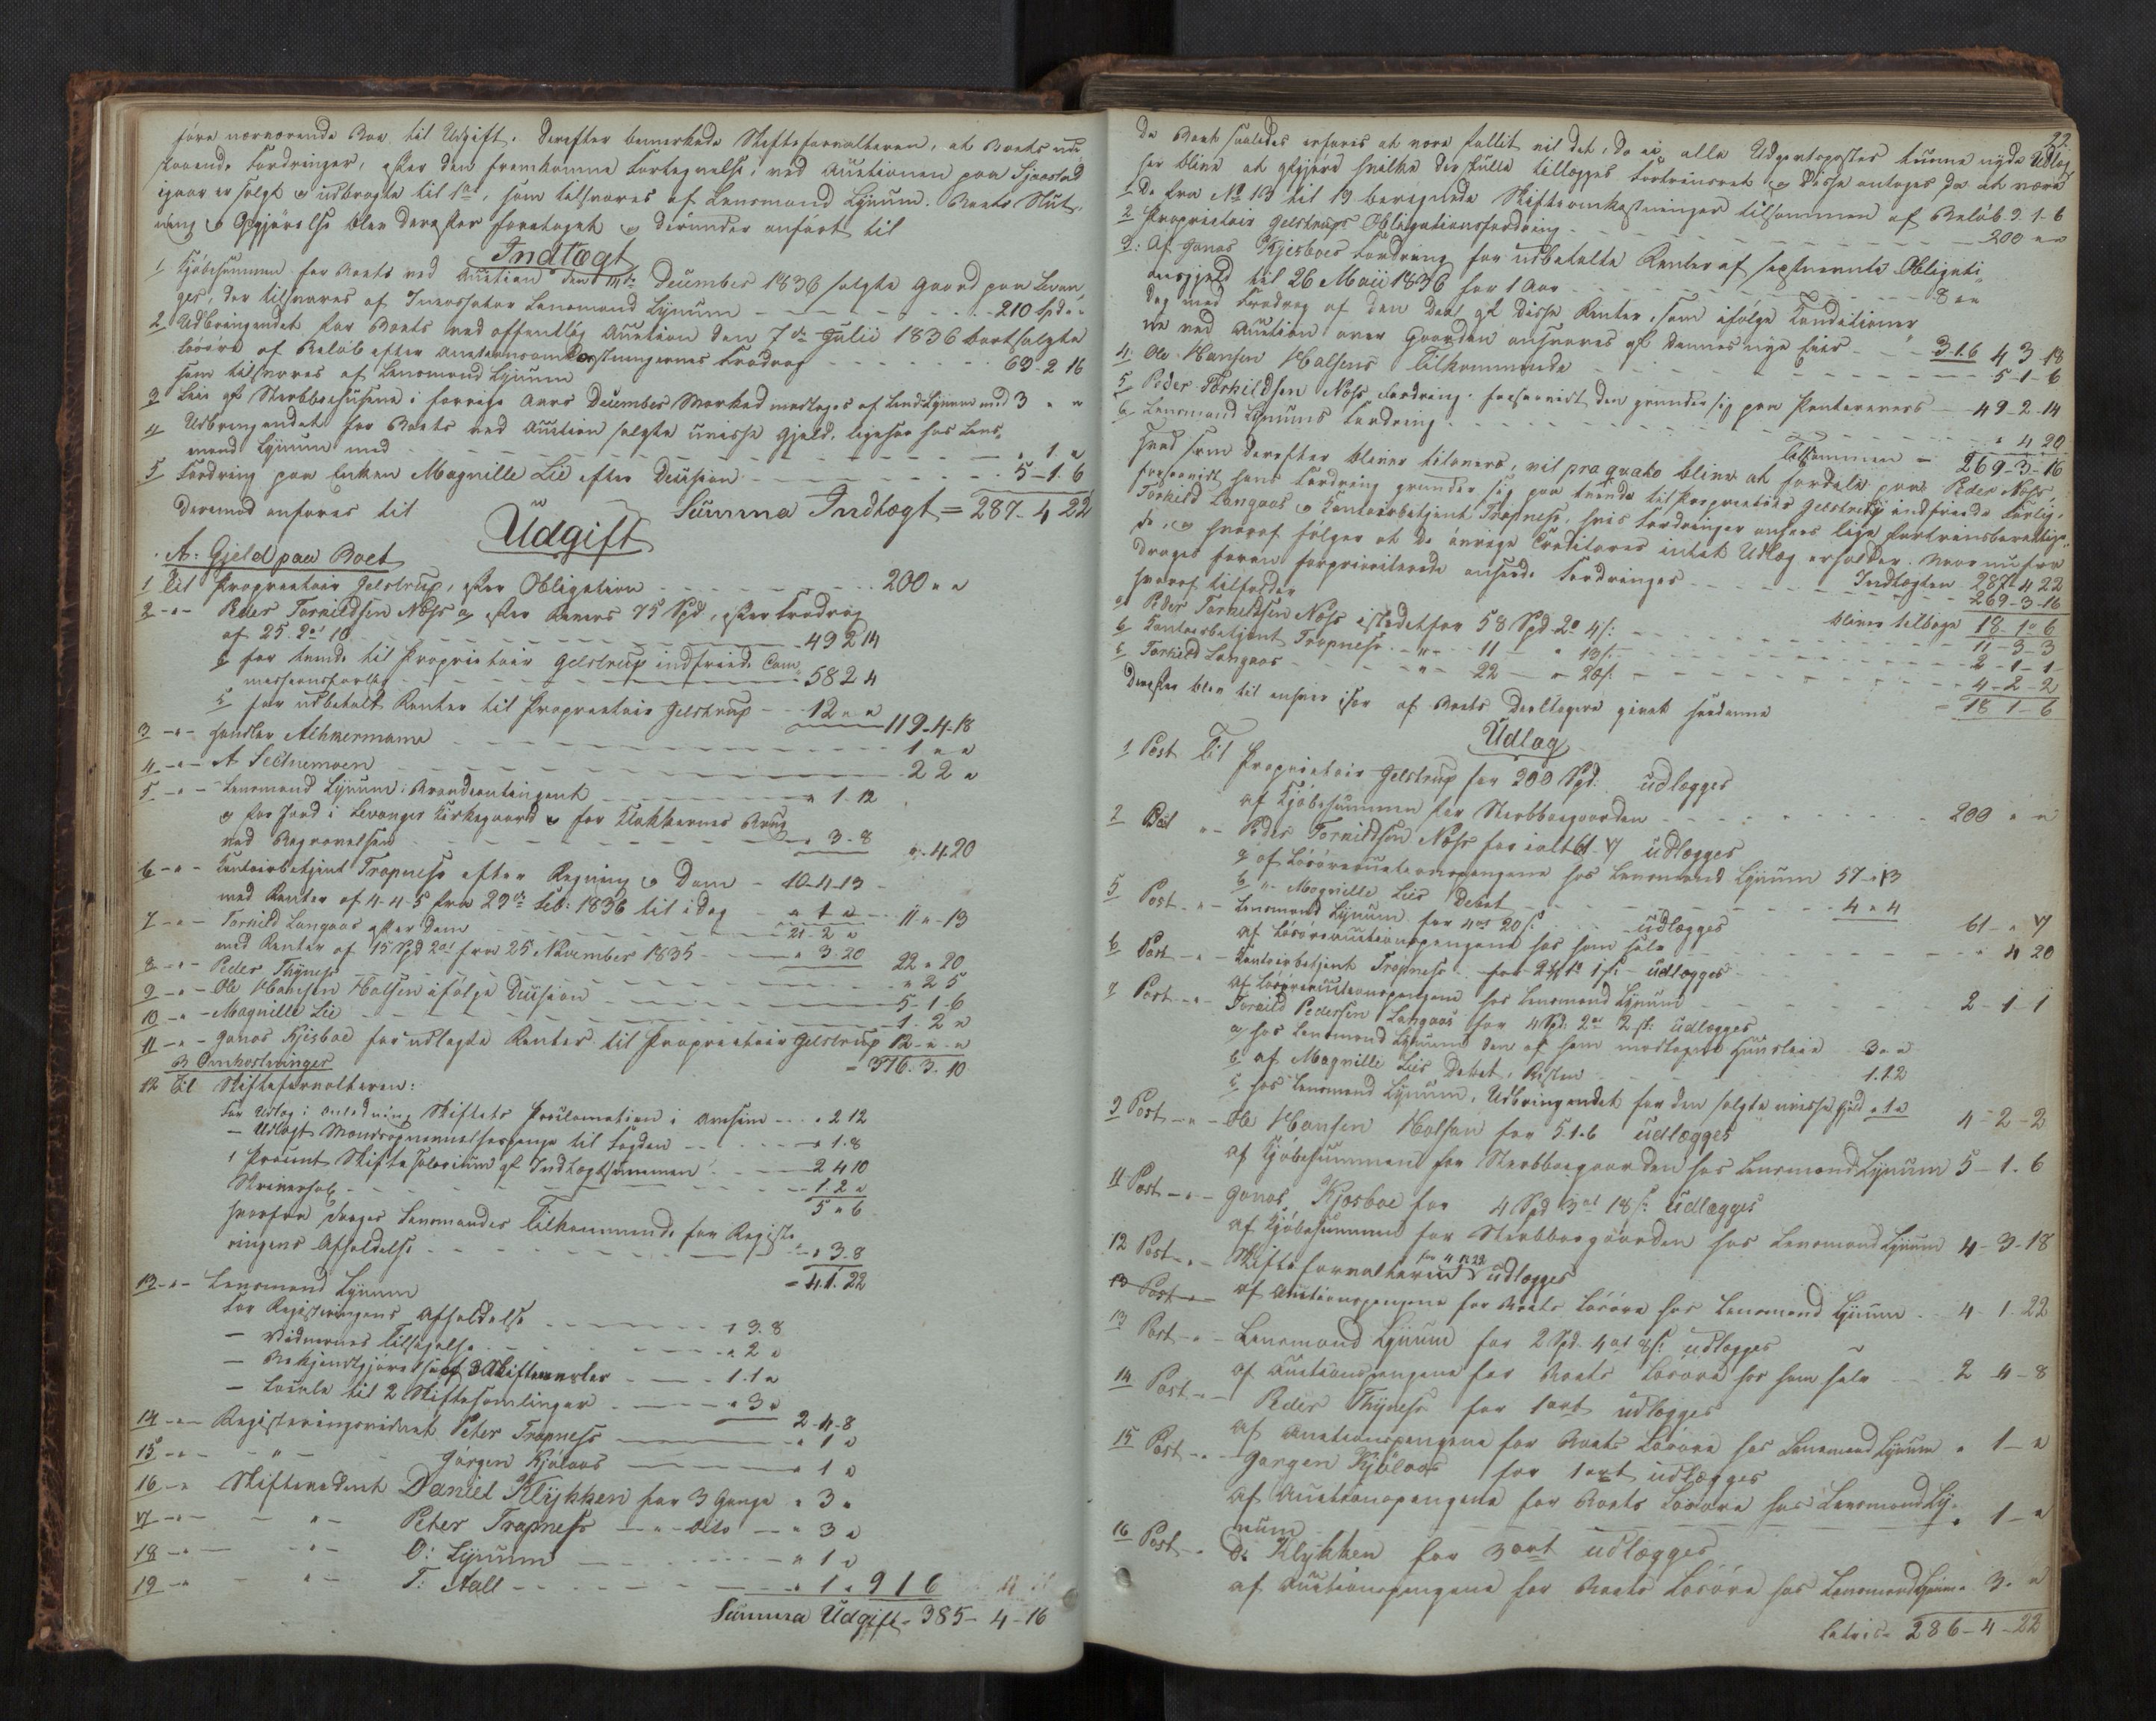 føre nærværende Boe til Udgift. Derefter bemærkede Skifteforvalteren, at Boets ude-
staaende Fordringer, efter den fremkomne Fortegnelse, ved Auctionen paa Sjaastad
igaar er solgt og udbragte til 1 ort, som tilsvares af Lensmand Lynum. Boets Slut-
ning og Opgjørelse blev derefter foretaget og derunder anført til
Indtægt
1 Kjøbesummen for Boets ved Auction den 14de December 1836 solgte Gaard paa Levan-
ger, der tilsvares af Incassator Lensmand Lynum - - - 210 Spd " "
2 Udbringendet for Boets ved offentlig Auction den 7de Julii 1836 bortsolgte
Løsøre af Beløb efter Auctionsomkostningernes Fradrag
som tilsvares af Lensmand Lynum - - - 63. 2 16
3 Leie af Sterbboehusene i forrige Aars December Marked modtages af Lensd. Lynum med 3 " "
4 Udbringendet for Boets ved Auction solgte uvisse Gjeld, ligesaa hos Lens-
mand Lynum med - - - " 1. "
5 Fordring paa Enken Magnille Lie efter Decision - - - 5-1. 6
Summa Indtægt = 287. 4 22
Derimod anføres til
Udgift
A. Gjeld paa Boet
1 Til Proprietair Gelstrup, efter Obligation - - - 200 " "
2 - " - Peder Torkildsen Næss a, efter Revers 75 Spd, efter Fradrag
af 25. 2ort 10 - - - 49 2 14
b for tvende til Proprietair Gelstrup indfriede Com-
missionsforlig - - - 58 2 4
c for udbetalt Renter til Proprietair Gelstrup - - 12 " "
119-4-18
3 - " - Handler Aihkermann - - - 1 " "
4 - " - A Seidnemoen - - - 2 2 "
5 - " - Lensmand Lynum: Brandcontingent - - - " 1-12
og for Jord i Levanger Kirkegaard og for Klokkernes Brug
ved Begravelsen - - - " 3-8 " - 4-20
6 - " - Contoirbetjent Tropness efter Regning og Dom - 10-4-13 -
med Renter af 4-4-5 fra 29de Feb: 1836 til i dag - " 1 " - 11 " - 13
7 - " - Torkild Langaas efter Dom - - - 21-2 "
med Renter af 15 Spd 2ort fra 25 November 1835 - - " 3-20 22 " 20
8 - " - Peder Thyness - - - " 2 5
9 - " - Ole Hansen Halsen ifølge Decision - - - 5-1-6
10 - " - Magnille Lie - - - 1. 2 "
11 - " - Jonas Kjesboe for udlagte Renter til Proprietair Gelstrup 12 - " - "
= 376. 3. 10
B Omkostninger
12 Til Skifteforvalteren:
For Udlæg i Anledning Skiftets Proclamation i Avisen - - . 2 12
- Udlagt Mandsopnævnelsespenge til Fogden - - - " 1-8
1 Procent Skifte Salarium af Indtægtssummen - - - 2 4 10
Skriversal - - - 1. 2 "
5 " 6
hvorfra drages Lensmandes Tilkommende for Registe-
ringens Afholdelse - - - " 3-8
= 4. 1. 22
13 - " - Lensmand Lynum
For Registeringens Afholdelse - - - " 3. 8
- Vidnernes Tilsigelse - - - " 2 "
- Bekjendtgjørelse af 3 Skiftesamlinger - - 1. 1 "
- Locale til 2 Skiftesamlinger - - - " 3 "
2-4-8
14 - " - Registeringsvidnet Peter Tropness - - - " 1 "
15 - " - - " - Jørgen Kjølaas - - - " 1 "
16 - " Skiftevidnet Daniel Klykken for 3 Gange " 3 "
17 - " - - " - Peter Tropness - " - dito - " 3 "
18 - " - - " - O: Lynum - - - " 1 "
19 - " - " - T: Aall - - - " 1 " 9 1 6
Summa Udgift - 385 - 4 - 16
22.
Da Boet saaledes erfares at være fallit vil det, da ei alle Udgivtsposter kunne nyde Udlæg
her blive at afgjøre hvilke der skulle tillægges Fortrinsret og disse antages da at være
1 De fra No 13 til 19 beregnede Skifteomkostninger tilsammen af Beløb 9-1-6
2 Proprietair Gelstrups Obligationsfordring - - - 200 " "
3: Af Jonas Kjesboes Fordring for udbetalte Renter af sextnævnte Obligati-
onsgjeld til 26 Maii 1836 for 1 Aar - - - 8 " "
dog med Fradrag af den Deel af disse Renter, som ifølge Conditioner-
ne ved Auction over Gaarden ansvares af dennes nye Eier - - 3-1-6 4 3-18
4 Ole Hansen Halsens Tilkommende - - - 5-1-6
5 Peder Torkildsen Næss Fordring forsaavidt den grunder sig paa Panterevers - 49-2-14
6 Lensmand Lynums Fordring - - - " 4 20
Tilsammen - 269-3-16
Hvad som derefter bliver tilovers, vil pro qvoto blive at fordele paa Peder Næss,
forsaavidt hans Fordring grunder sig paa tvende til Proprietair Gelstrup indfriede Forlig,
Torkild Langaas og Contoirbetjent Tropness, hvis Fordringer ansees lige fortrinsberettige-
de, og hvoraf følger at de øvrige Creditorer intet Udlæg erholder. Naar nu fra
Indtægten 287. 4 22
drages foran forprioriterede ansførte Fordringer - - - 269-3-16
bliver tilbage 18. 1 " 6
hvoraf tilfalder
a, Peder Torkildsen Næss istedetfor 58 Spd 2ort 4 s: - - - 11-3-3
b, Contoirbetjent Tropness - " - 11 - " 13 s: - - - 2-1-1-
c, Torkild Langaas - " - 22 - " 20 s: - - - 4-2-2
= 18 1-6
Derefter blev til enhver især af Boets Deeltagere gjort saadanne
Udlæg
1 Post Til Proprietair Gelstrup for 200 Spd: udlægges
af Kjøbesummen for Sterbboegaarden - - - 200 " "
2 Post " - Peder Torkildsen Næss for ialt 61 - 7 udlægges
a, af Løsøreauctionspengene hos Lensmand Lynum 57 - " 3
b " - Magnille Lies Debet - - - 4 " 4
61 - " 7
5 Post - " - Lensmand Lynum for 4ort 20 s: udlægges
af Løsøreauctionspengene hos ham selv - - - " 4 20
6 Post - " - Contoirbetjent Tropness for 2 Spd 1ort 1 s: udlægges
af Løsøreauctionspengene hos Lensmand Lynum - - - 2-1-1
7 Post - " - Torkild Pedersen Langaas for 4 Spd: 2ort 2 s: udlægges
a, hos Lensmand Lynum den af ham modtagne Huusleie 3 " "
b af Magnille Lies Debet, Resten - - - 1.1.2
c hos Lensmand Lynum, Udbringendet for den solgte uvisse Gjeld " 1 " 4-2-2
9 Post - " - Ole Hansen Halsen for 5-1-6 udlægges
af Kjøbesummen for Sterbboegaarden hos Lensmand Lynum 5-1. 6
11 Post - " - Jonas Kjesboe for 4 Spd 3ort 18 s: udlægges
af Kjøbesummen for Sterbboegaarden hos Lensmand Lynum 4-3-18
12 Post - " - Skifteforvalteren for 4 1 22 udlægges
13 Post - "
af Auctionspengene for Boets Løsøre hos Lensmand Lynum - 4-1. 22
13 Post - " - Lensmand Lynum for 2 Spd 4ort 8 s: udlægges
af Auctionspengene for Boets Løsøre hos ham selv - - 2-4-8
14 Post - " - Peder Thyness for 1ort udlægges
af Auctionspengene for Boets Løsøre hos Lensmand Lynum " 1 - "
15 Post - " - Jørgen Kjølaas for 1ort udlægges
af Auctionspengene for Boets Løsøre hos Lensmand Ly-
num - - - " 1 - "
16 Post - " D: Klykken for 3ort udlægges
af Auctionspengene for Boets Løsøre hos Lensmand Lynum " 3. "
Latris 286-4-22